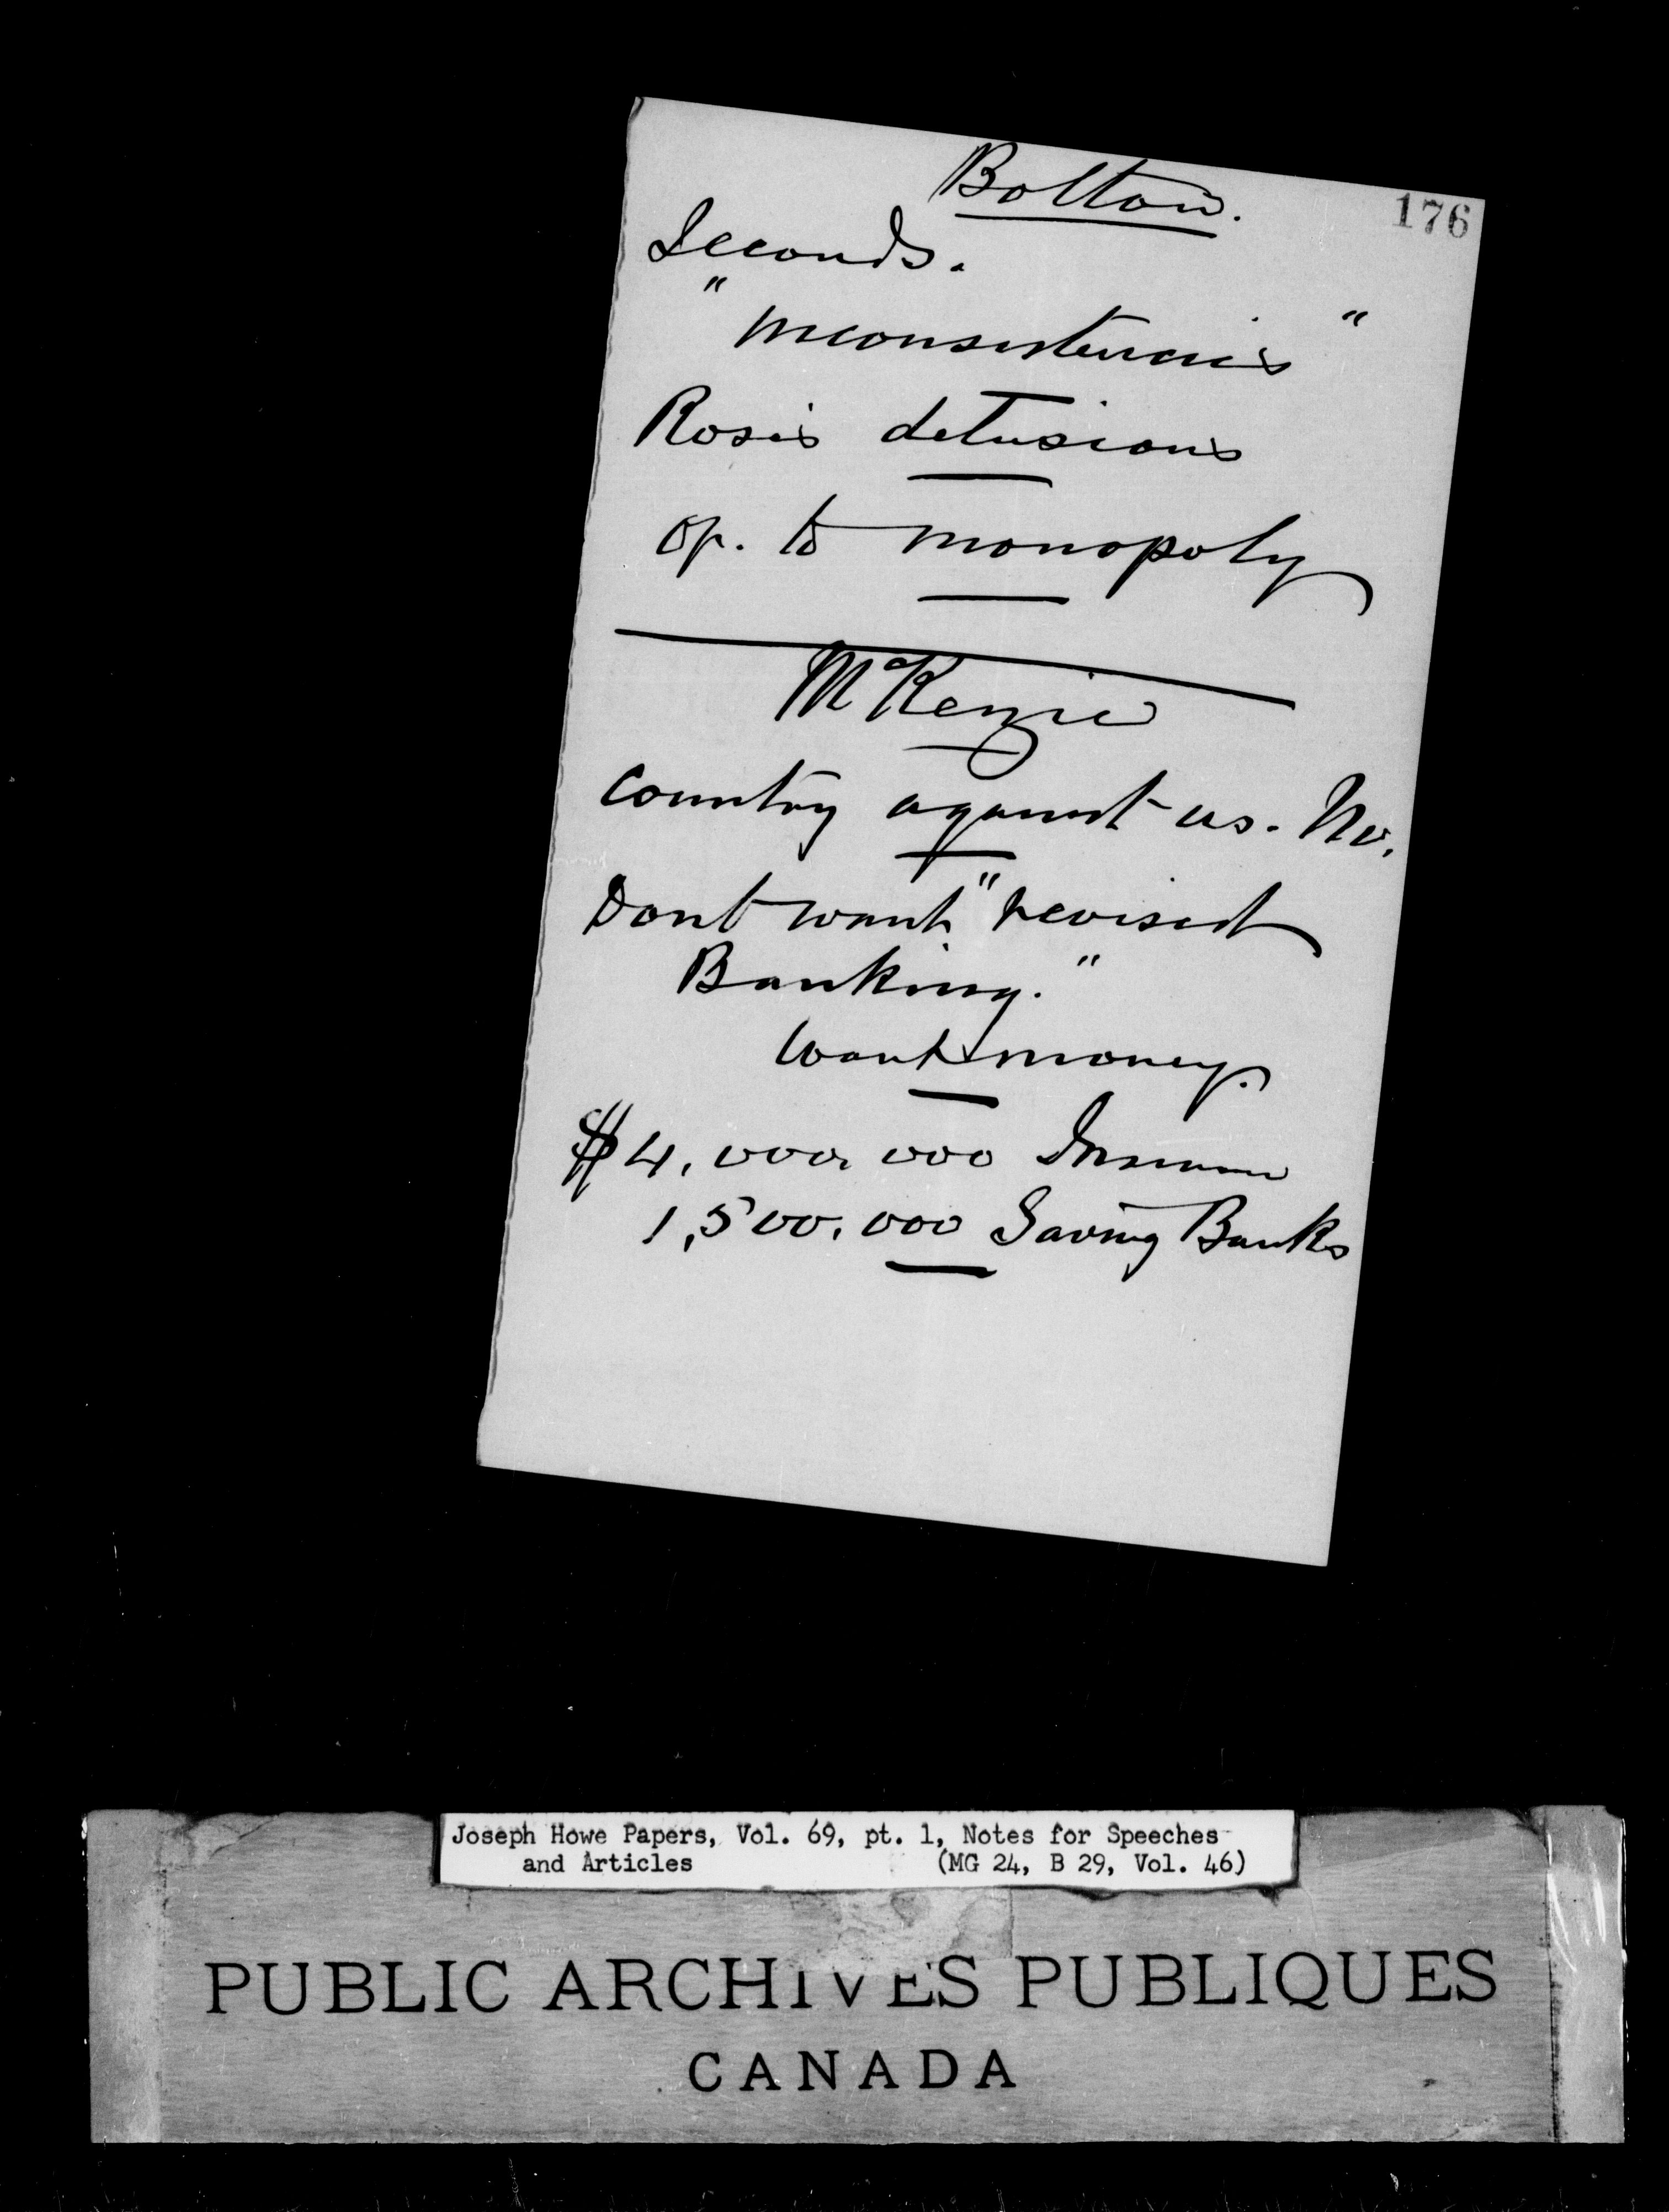 Bolton.
176
Seconds.
"inconsistencies"
Rose's delusions
op. to monopoly
McKenzie
Country against us. No.
Dont want "revised
Banking."
Want money.
$4,000,000
1,500,000 Saving Banks
Joseph Howe Papers, Vol. 69, pt. 1, Notes for Speeches
and Articles (MG 24, B 29, Vol. 46)
PUBLIC ARCHIVES PUBLIQUES
CANADA